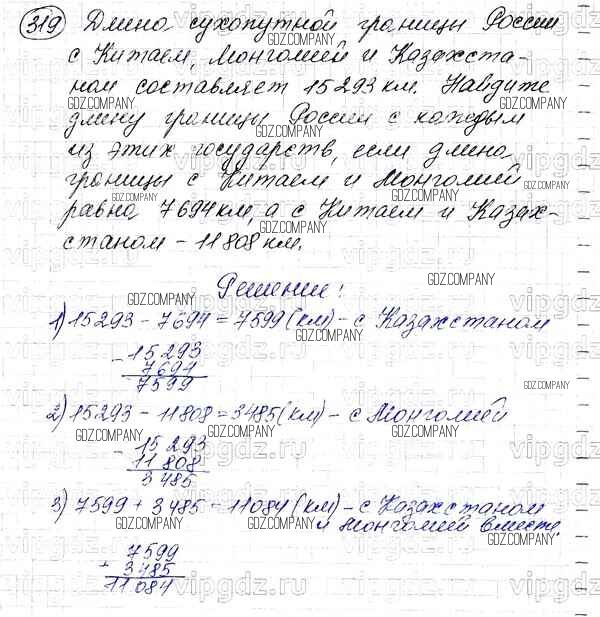 319 Длина сухопутной границы России
с Китаем, Монголией и Казахста-
ном составляет 15 293 км. Найдите
длину границы России с каждым
из этих государств, если длина
границы с Китаем и Монголией
равна 7694 км, а с Китаем и Казах-
станом - 11 808 км.
Решение:
1) 15293 - 7694 = 7599 (км) - с Казахстаном
- 15 293
7694
7599
2) 15293 - 11808 = 3485 (км) - с Монголией
- 15 293
11 808
3 485
3) 7599 + 3485 = 11084 (км) - с Казахстаном
и Монголией вместе.
+ 7599
3485
11 084
GDZ.COMPANY
vipgdz.ru